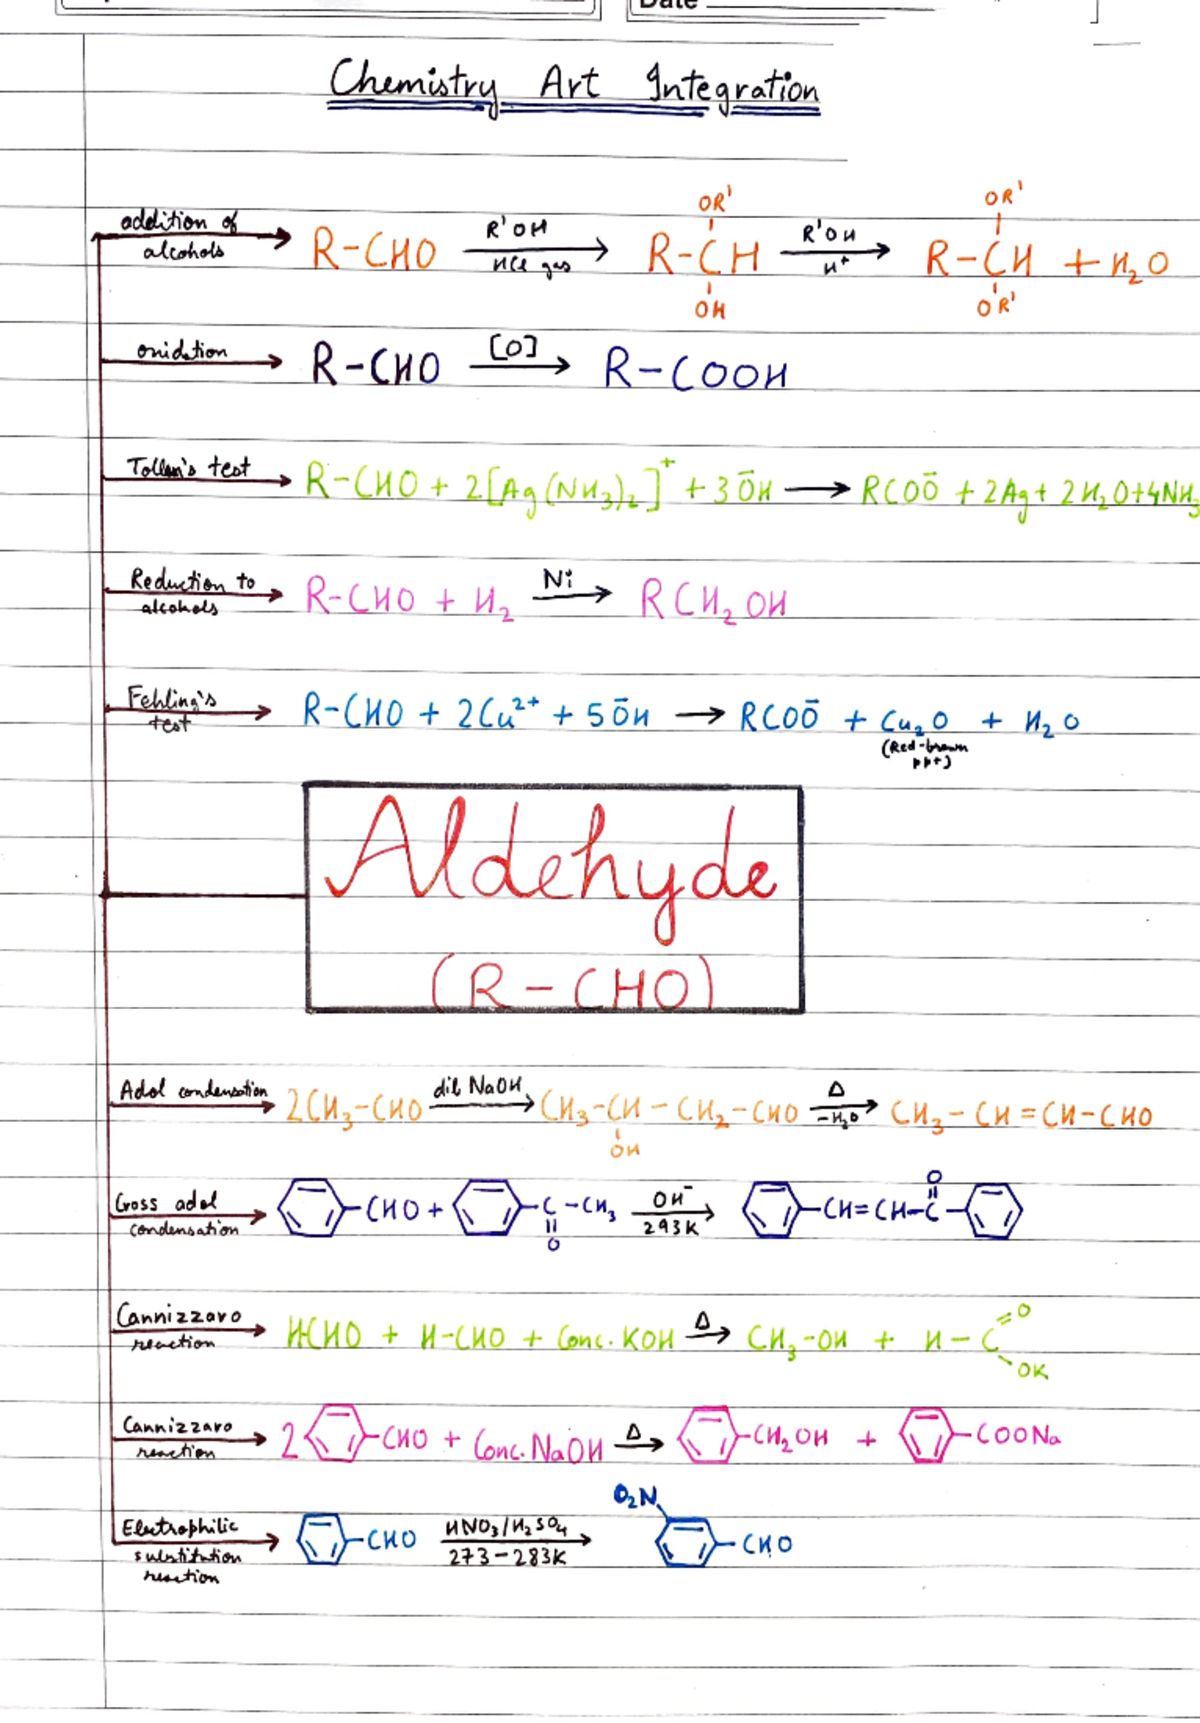 Date
Chemistry Art Integration
addition of alcohols R-CHO R'OH HCl gas R-CH OR' OH R'OH H⁺ R-CH OR' OR' + H₂O
oxidation R-CHO [O] R-COOH
Tollen's test R-CHO + 2[Ag(NH₃)₂]⁺ + 3ŌH → RCOŌ + 2Ag + 2H₂O+4NH₃
Reduction to alcohols R-CHO + H₂ Ni → RCH₂OH
Fehling's test R-CHO + 2Cu²⁺ + 5ŌH → RCOŌ + Cu₂O + H₂O
(Red-brown
ppt)
Aldehyde
(R-CHO)
Adol condensation 2CH₃-CHO dil NaOH → CH₃-CH-CH₂-CHO OH Δ -H₂O → CH₃-CH=CH-CHO
Cross adol condensation -CHO + -C-CH₃ O OH⁻ 293K → -CH=CH-C- O
Cannizzaro reaction HCHO + H-CHO + Conc. KOH Δ → CH₃-OH + H-C =O OK
Cannizzaro reaction 2 -CHO + Conc. NaOH Δ → -CH₂OH + -COONa
Electrophilic substitution reaction -CHO HNO₃/H₂SO₄ 273-283K → O₂N -CHO